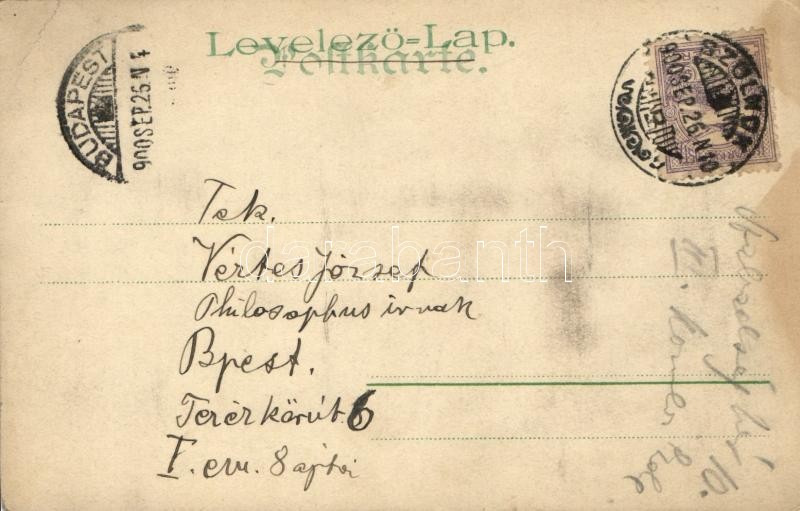 Levelező-Lap.
Postkarte.
BUDAPEST
900 SEP. 26. N 4
SZOLNOK
900 SEP. 26. N 10
Tek.
Vértes József
Philosophus úrnak
Bpest.
Teréz körút 6
I. em. 8 ajtó
darabanth
III.
10.